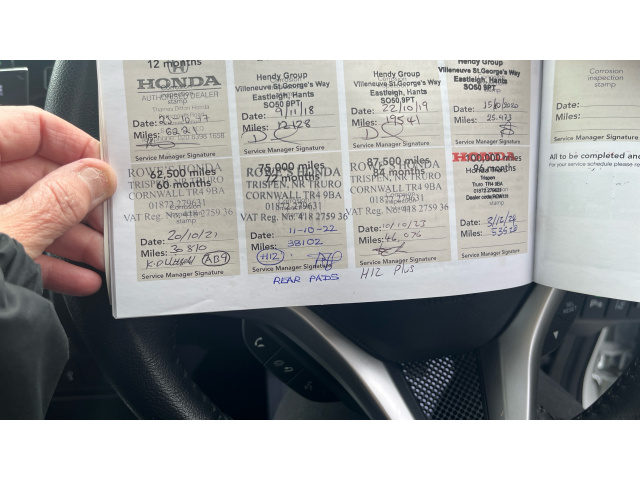 12 months
HONDA
AUTHORISED DEALER
Thames Ditton Honda
stamp
Date: 25-10-17
Miles: 6221
Service Manager Signature
Hendy Group
Villeneuve St.George's Way
Eastleigh, Hants
SO50 9PT
Date: 9/11/18
Miles: 12128
Service Manager Signature
Hendy Group
Villeneuve St.George's Way
Eastleigh, Hants
SO50 9PT
Date: 22/10/19
Miles: 19541
Service Manager Signature
Hendy Group
Villeneuve St.George's Way
Eastleigh, Hants
SO50 9PT
Date: 15/10/2020
Miles: 25,433
Service Manager Signature
Corrosion
inspection
stamp
Date:
Miles:
Service Manager Signature
62,500 miles
60 months
TRISPEN, NR TRURO
CORNWALL TR4 9BA
01872 279631
VAT Reg. No. 418 2759 36
Date: 20/10/21
Miles: 30 810
AB9
Service Manager Signature
75,000 miles
72 months
ROWE'S HONDA
TRISPEN, NR TRURO
CORNWALL TR4 9BA
01872 279631
VAT Reg. No. 418 2759 36
Date: 11-10-22
Miles: 38102
H12
Service Manager Signature
REAR PADS
87,500 miles
84 months
TRISPEN, NR TRURO
CORNWALL TR4 9BA
01872 279631
VAT Reg. No. 418 2759 36
Date: 10/10/23
Miles: 46 076
Service Manager Signature
H12 Plus
HONDA
100,000 miles
96 months
Trispen
Truro TR4 9BA
01872 279631
Date: 8/12/24
Miles: 53528
Service Manager Signature
All to be completed and
For your service schedule please re